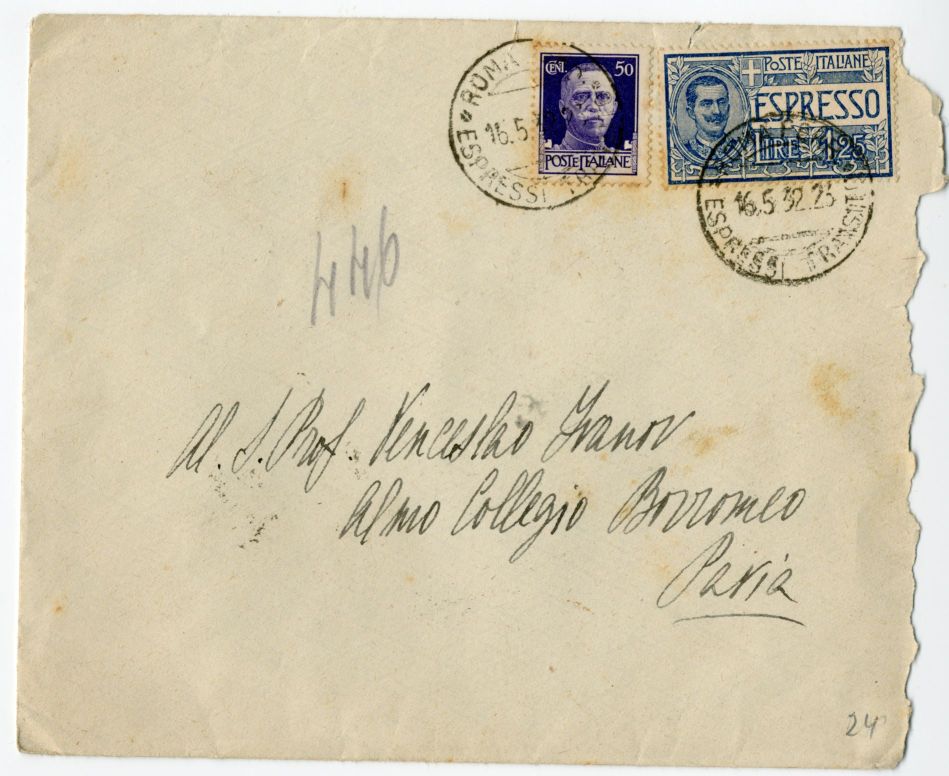 CENI. 50
POSTE ITALIANE
POSTE ITALIANE
ESPRESSO
LIRE 1,25
ROMA
16.5
ESPRESSI
ROMA
16.5 32.23
ESPRESSI TRANSITI
446
Al. S. Prof. Venceslao Ivanov
Almo Collegio Borromeo
Pavia
24